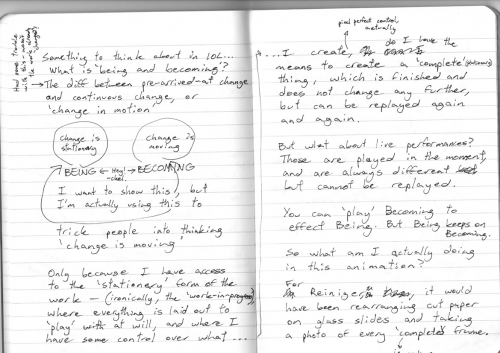 Had some trouble
with this - wasn't
the work
Something to think about in IOL...
What is 'being and becoming'?
→ The diff between pre-arrived-at change
and continuous change, or
'change in motion'
change is
stationery
change is
moving
BEING ← Hey! → BECOMING
I want to show this, but
I'm actually using this to
trick people into thinking
'change is moving'
Only because I have access
to the 'stationery' form of the
work — (ironically, the 'work-in-progress')
where everything is laid out to
'play' with at will, and where I
have some control over what ...
pixel perfect control,
actually
... I create, do I have the
means to create a 'complete'
thing, which is finished and
does not change any further,
but can be replayed again
and again.
But what about live performances?
Those are played in the moment,
and are always different
but cannot be replayed.
You can 'play' Becoming to
effect Being. But Being keeps on
Becoming.
So what am I actually doing
in this animation?
For
Reiniger, it would
have been rearranging cut paper
on glass slides and taking
a photo of every 'complete' frame.